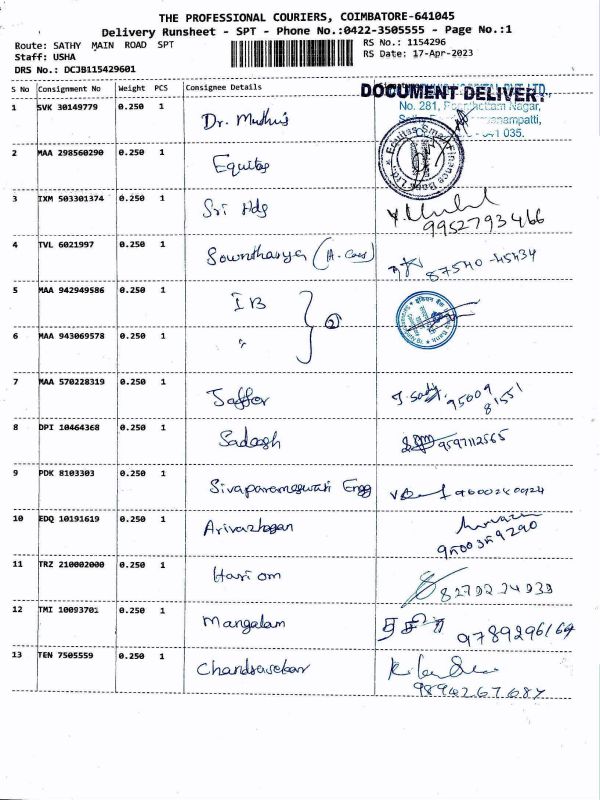 THE PROFESSIONAL COURIERS, COIMBATORE-641045
Delivery Runsheet - SPT - Phone No.:0422-3505555 - Page No.:1
Route: SATHY MAIN ROAD SPT
RS No.: 1154296
Staff: USHA
RS Date: 17-Apr-2023
DRS No.: DCJB115429601
S No Consignment No Weight PCS Consignee Details
DOCUMENT DELIVERY
1 SVK 30149779 0.250 1 Dr. Muthu's
No. 281, Nagar,
641 035.
2 MAA 298560290 0.250 1 Equitas
Equitas Small Finance Bank Ltd.
3 IXM 503301374 0.250 1 Sri Hds
9952793466
4 TVL 6021997 0.250 1 Sowntharya
87540-45434
5 MAA 942949586 0.250 1 IB
②
6 MAA 943069578 0.250 1 "
7 MAA 570228319 0.250 1 Jaffor
95009
81551
8 DPI 10464368 0.250 1 Sadaesh
9597112565
9 PDK 8103303 0.250 1 Sivaparameswari Engg
9600240924
10 EDQ 10191619 0.250 1 Arivazhagan
9500359290
11 TRZ 210002000 0.250 1 Hari om
12 TMI 10093701 0.250 1 Mangalam
9789296164
13 TEN 7505559 0.250 1 Chandrasekar